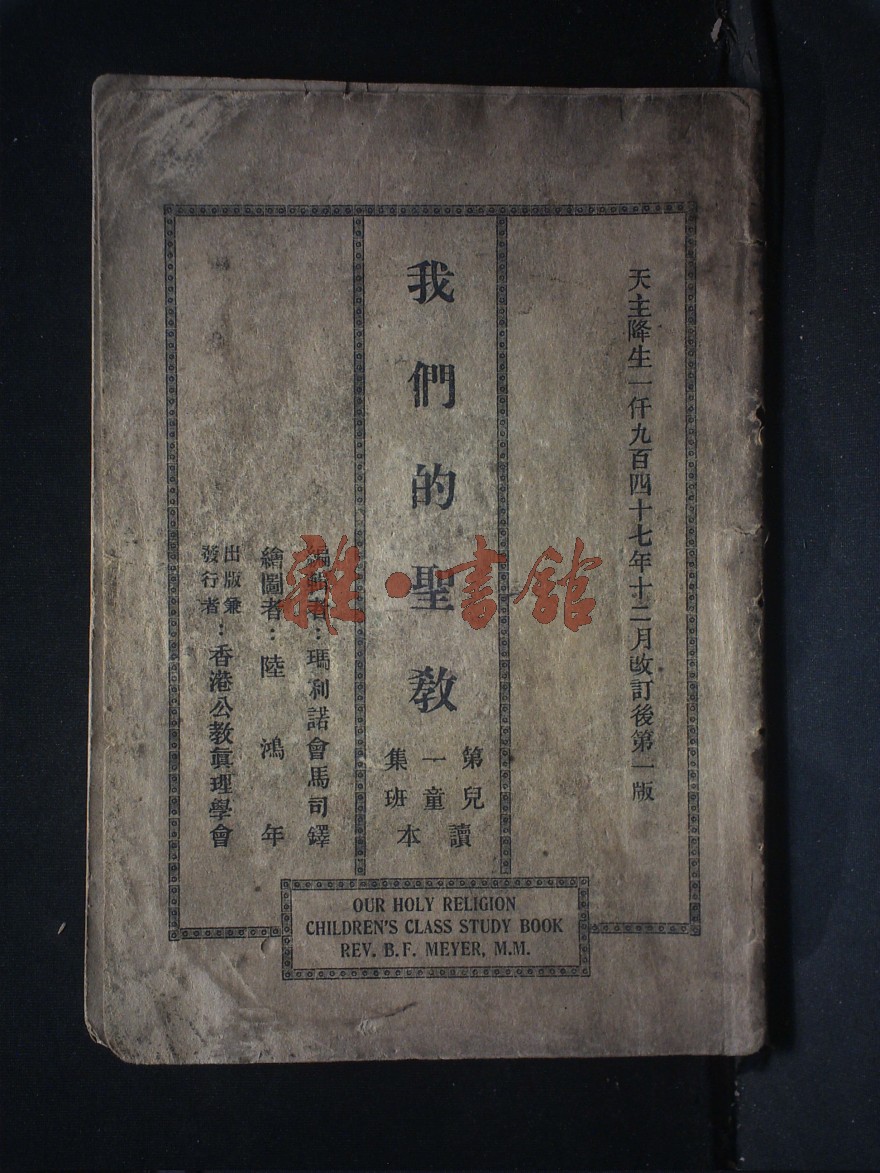 天主降生一仟九百四十七年十二月改訂後第一版
我們的聖教
第一集
兒童班
讀本
編輯者：瑪利諾會馬司鐸
繪圖者：陸鴻年
出版兼
發行者：香港公教眞理學會
OUR HOLY RELIGION
CHILDREN'S CLASS STUDY BOOK
REV. B. F. MEYER, M.M.
雜·書館